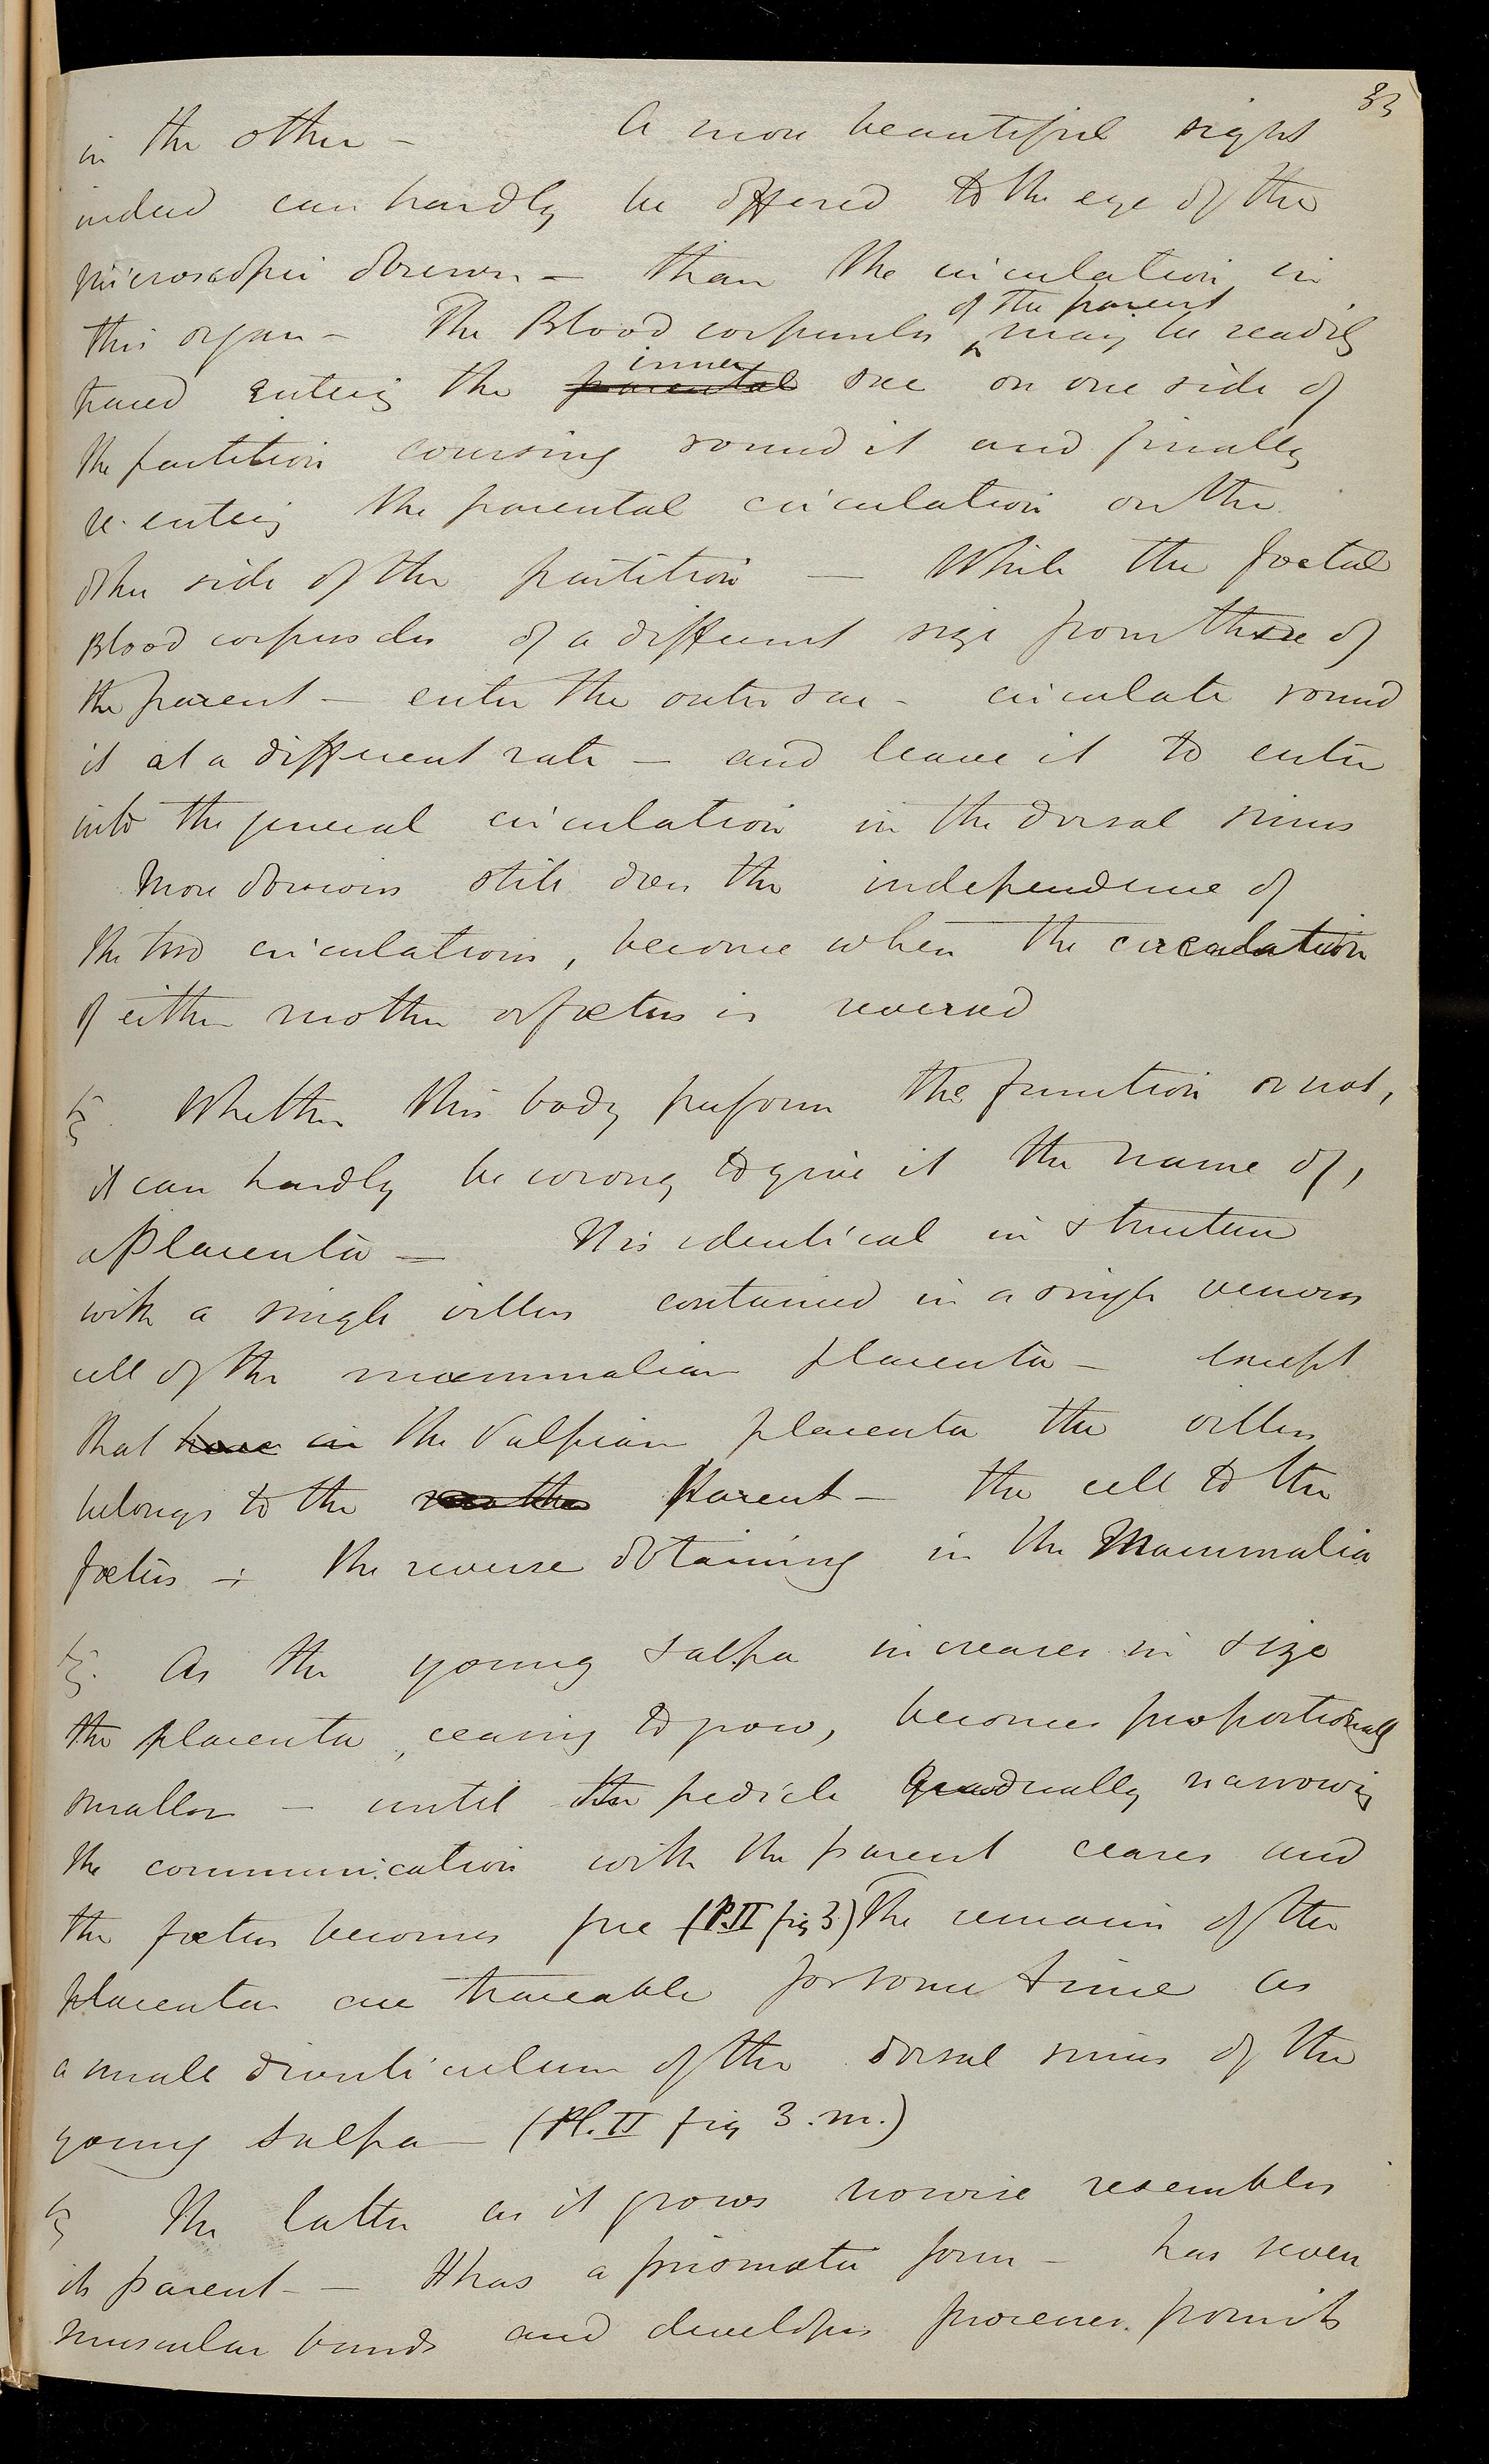 33
in the other — A more beautiful sight
indeed can hardly be offered to the eye of the
microscopic observer — than the circulation in
this organ — The Blood corpuscles of the parent may be readily
traced entering the parental inner sac on one side of
the partition coursing round it and finally
re-entering the parental circulation on the
other side of the partition — While the foetal
Blood corpuscles of a different size from those of
the parent — enter the outer sac — circulate round
it at a different rate — and leave it to enter
into the general circulation in the dorsal sinus
More obvious still does the independence of
the two circulations, become when the circulation
of either mother or foetus is reversed
Whether this body perform the function or not,
it can hardly be wrong to give it the name of,
a Placenta — It is identical in structure
with a single villus contained in a single venous
cell of the mammalian placenta — except
that here in the Salpian placenta the villus
belongs to the mother Parent — the cell to the
foetus —; the reverse obtaining in the Mammalia
As the young Salpa increases in size
the placenta, ceasing to grow, becomes proportionally
smaller — until the pedicle gradually narrowing
the communication with the parent ceases and
the foetus becomes free (Pl. II fig 3) The remains of the
placenta are traceable for some time as
a small diverticulum of the dorsal sinus of the
young Salpa — (Pl. II fig 3. m.)
The latter as it grows nowise resembles
its parent — It has a prismatic form — has seven
muscular bands and develops processes from its